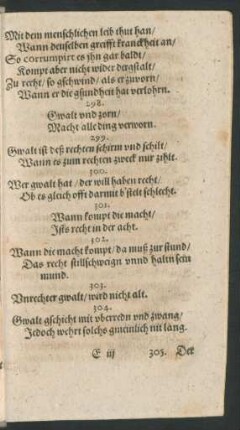 Mit dem menschlichen leib thut han/
Wann denselben greifft kranckheit an/
So corrumpirt es jhn gar baldt/
Kompt aber nicht wider dergstalt/
Zu recht/ so gschwind/ als er zuvorn/
Wann er die gsundheit hat verlohrn.
298.
Gwalt vnd zorn/
Macht alle ding verworn.
299.
Gwalt ist deß rechten schirm vnd schilt/
Wann es zum rechten zweck nur zihlt.
300.
Wer gwalt hat / der will haben recht/
Ob es gleich offt darmit b'stelt schlecht.
301.
Wann kompt die macht/
Ists recht in der acht.
302.
Wann die macht kompt/ da muß zur stund/
Das recht stillschweign vnnd haltn sein
mund.
303.
Vnrechter gwalt/ wird nicht alt.
304.
Gwalt gschicht mit vberredn vnd zwang/
Jedoch wehrt solchs gmeinlich nit lang.
E iij 305. Der